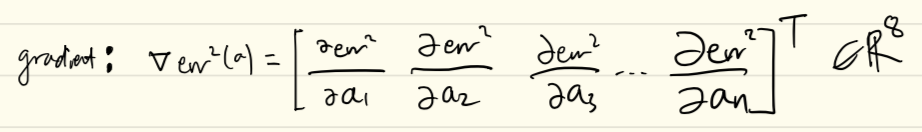 gradient: ∇ err²(a) = [∂err²/∂a₁ ∂err²/∂a₂ ∂err²/∂a₃ ... ∂err²/∂aₙ]ᵀ ∈ ℝ⁸